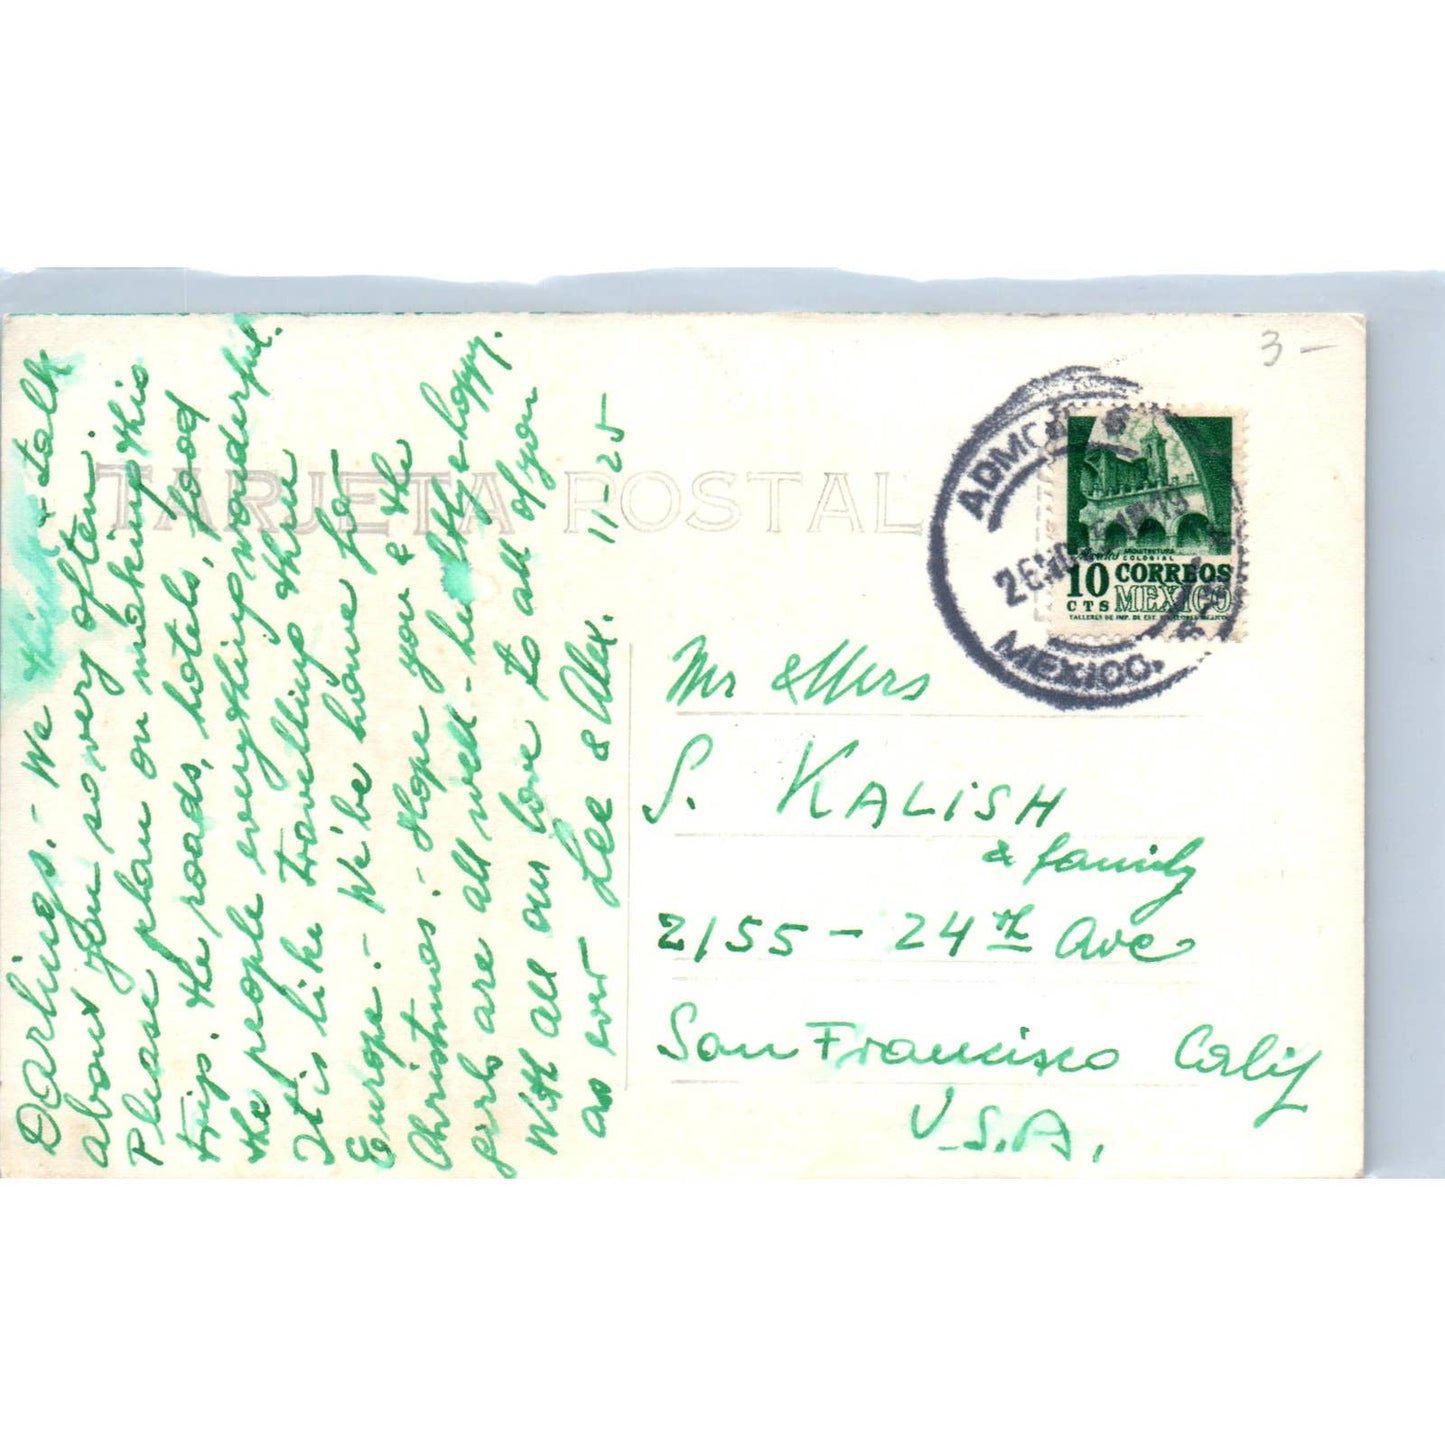 DARlings. - We think & talk
about you so very often.
Please plan on making this
trip. the roads, hotels, food
the people everything wonderful.
It is like travelling thru
Europe. - We'be home for
Christmas. - Hope you & the
girls are all well - healthy & happy.
With all our love to all of you
as ever Lee & Alex. 11-25
TARJETA POSTAL
3 -
ADMON
26 NOV
MEXICO.
ARQUITECTURA
COLONIAL
10 CORREOS
CTS MEXICO
Mr & Mrs
S. KALiSH
& family
2155 - 24th Ave
San Francisco Calif
U.S.A.